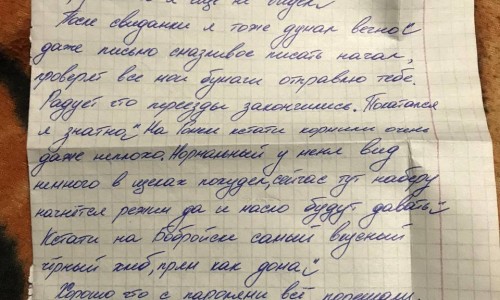 я ещё не видел
После свиданки я тоже думал вечно"
даже письмо смазливое писать начал,
проверят все мои бумаги отправлю тебе.
Радует что переезды закончились. Покатался
я знатно" На Гомки кстати кормили очень
даже неплохо. Нормальный у меня вид
немного в щеках похудел, сейчас тут наберу
начнётся режим да и масло будут давать"
Кстати на Бобруйске самый вкусный
чёрный хлеб, прям как дома"
Хорошо что с паролями всё порешали.